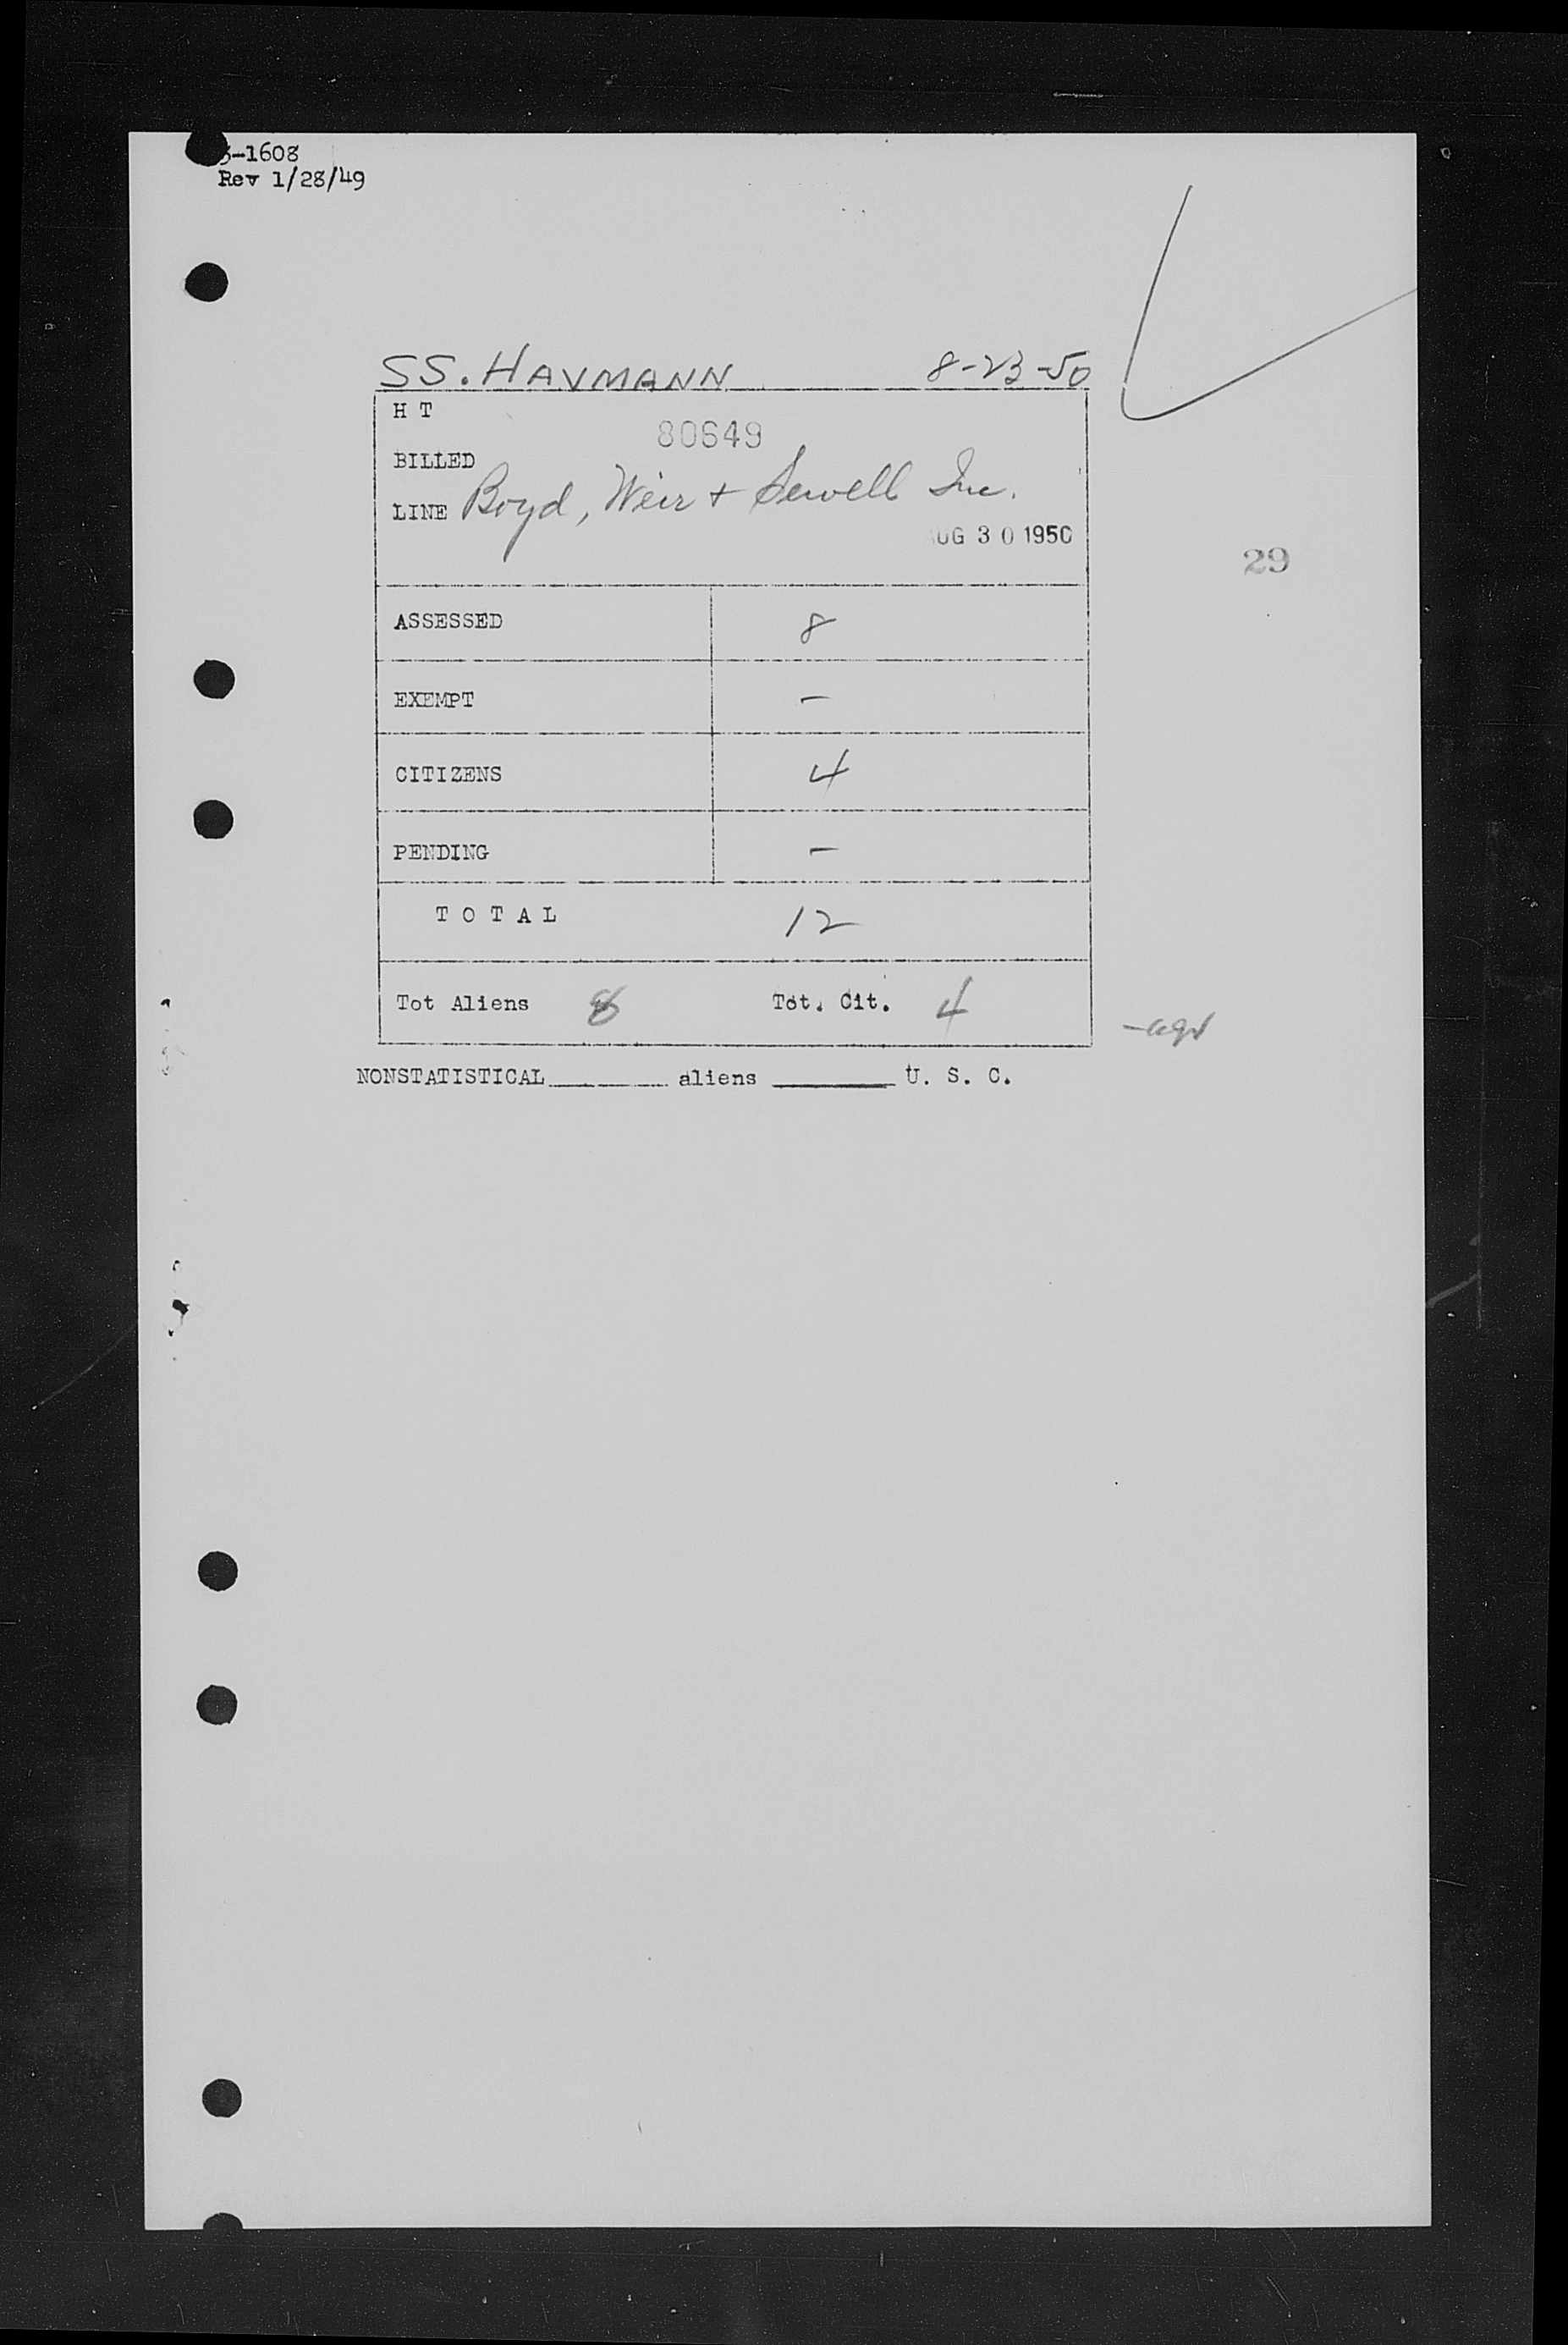 3-1608
Rev 1/28/49
SS. HAVMANN 8-23-50
H T
80649
BILLED
LINE Boyd, Weir + Sewell Inc.
AUG 30 1950
29
ASSESSED 8
EXEMPT -
CITIZENS 4
PENDING -
T O T A L 12
Tot Aliens 8 Tot. Cit. 4
NONSTATISTICAL aliens U. S. C.